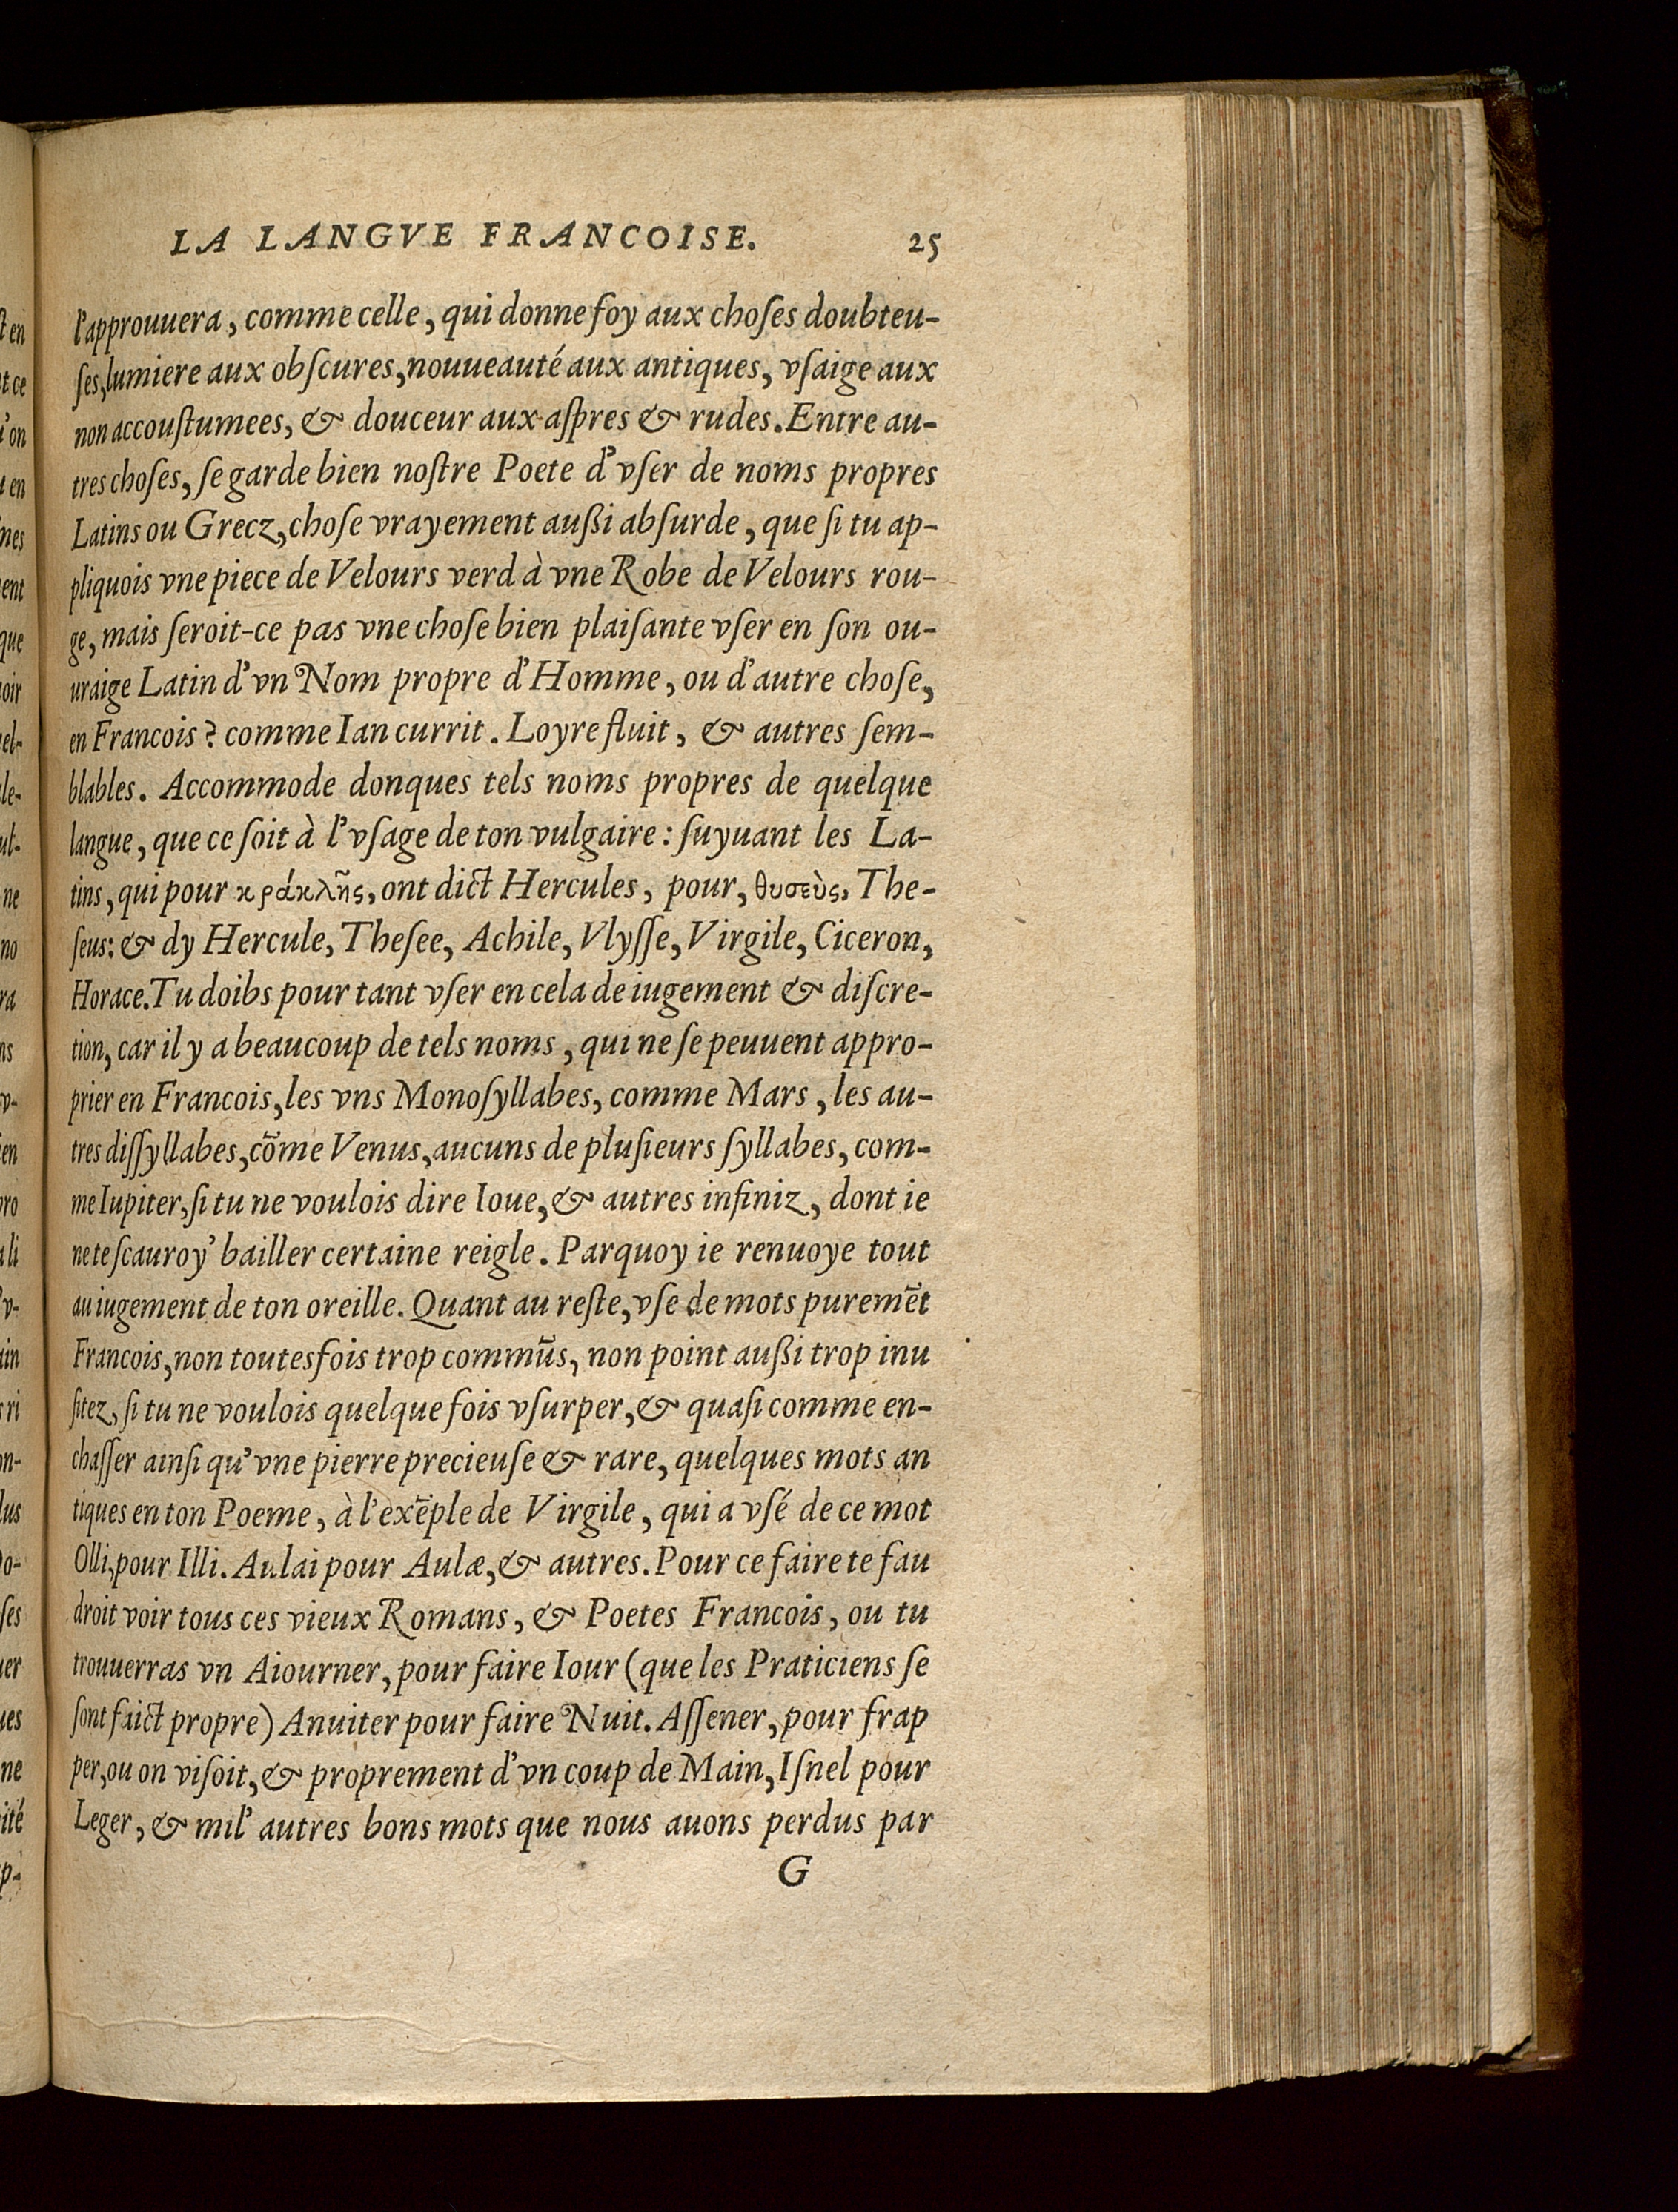 LA LANGVE FRANCOISE. 25
l'approuuera, comme celle, qui donne foy aux choſes doubteu-
ſes, lumiere aux obſcures, nouueauté aux antiques, vſaige aux
non accouſtumees, & douceur aux aſpres & rudes. Entre au-
tres choſes, ſe garde bien noſtre Poete d'vſer de noms propres
Latins ou Grecz, choſe vrayement außi abſurde, que ſi tu ap-
pliquois vne piece de Velours verd à vne Robe de Velours rou-
ge, mais ſeroit-ce pas vne choſe bien plaiſante vſer en ſon ou-
uraige Latin d'vn Nom propre d'Homme, ou d'autre choſe,
en Francois? comme Ian currit. Loyre fluit, & autres ſem-
blables. Accommode donques tels noms propres de quelque
langue, que ce ſoit à l'vſage de ton vulgaire: ſuyuant les La-
tins, qui pour κράκλη̃ς, ont dict Hercules, pour, θυσεὺς, The-
ſeus: & dy Hercule, Theſee, Achile, Vlyſſe, Virgile, Ciceron,
Horace. Tu doibs pour tant vſer en cela de iugement & diſcre-
tion, car il y a beaucoup de tels noms, qui ne ſe peuuent appro-
prier en Francois, les vns Monoſyllabes, comme Mars, les au-
tres diſſyllabes, cõme Venus, aucuns de pluſieurs ſyllabes, com-
me Iupiter, ſi tu ne voulois dire Ioue, & autres infiniz, dont ie
ne te ſcauroy' bailler certaine reigle. Parquoy ie renuoye tout
au iugement de ton oreille. Quant au reſte, vſe de mots puremẽt
Francois, non toutesfois trop commũs, non point außi trop inu
ſitez, ſi tu ne voulois quelque fois vſurper, & quaſi comme en-
chaſſer ainſi qu'vne pierre precieuſe & rare, quelques mots an
tiques en ton Poeme, à l'exẽple de Virgile, qui a vſé de ce mot
Olli, pour Illi. Aulai pour Aulæ, & autres. Pour ce faire te fau
droit voir tous ces vieux Romans, & Poetes Francois, ou tu
trouuerras vn Aiourner, pour faire Iour (que les Praticiens ſe
ſont faict propre) Anuiter pour faire Nuit. Aſſener, pour frap
per, ou on viſoit, & proprement d'vn coup de Main, Iſnel pour
Leger, & mil' autres bons mots que nous auons perdus par
G